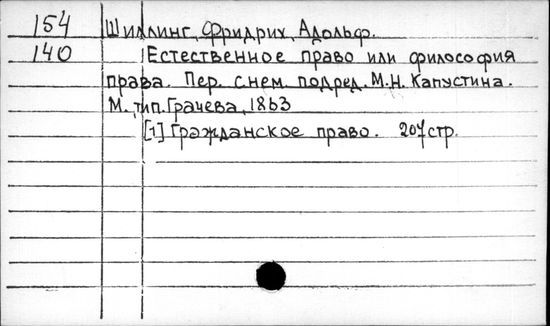 154 Шиллинг, Фридрих, Адольф.
140 Естественное право или философия
права. Пер. с нем. под ред. М.Н. Капустина.
М., тип. Грачева, 1863
[1] Гражданское право. 207 стр.